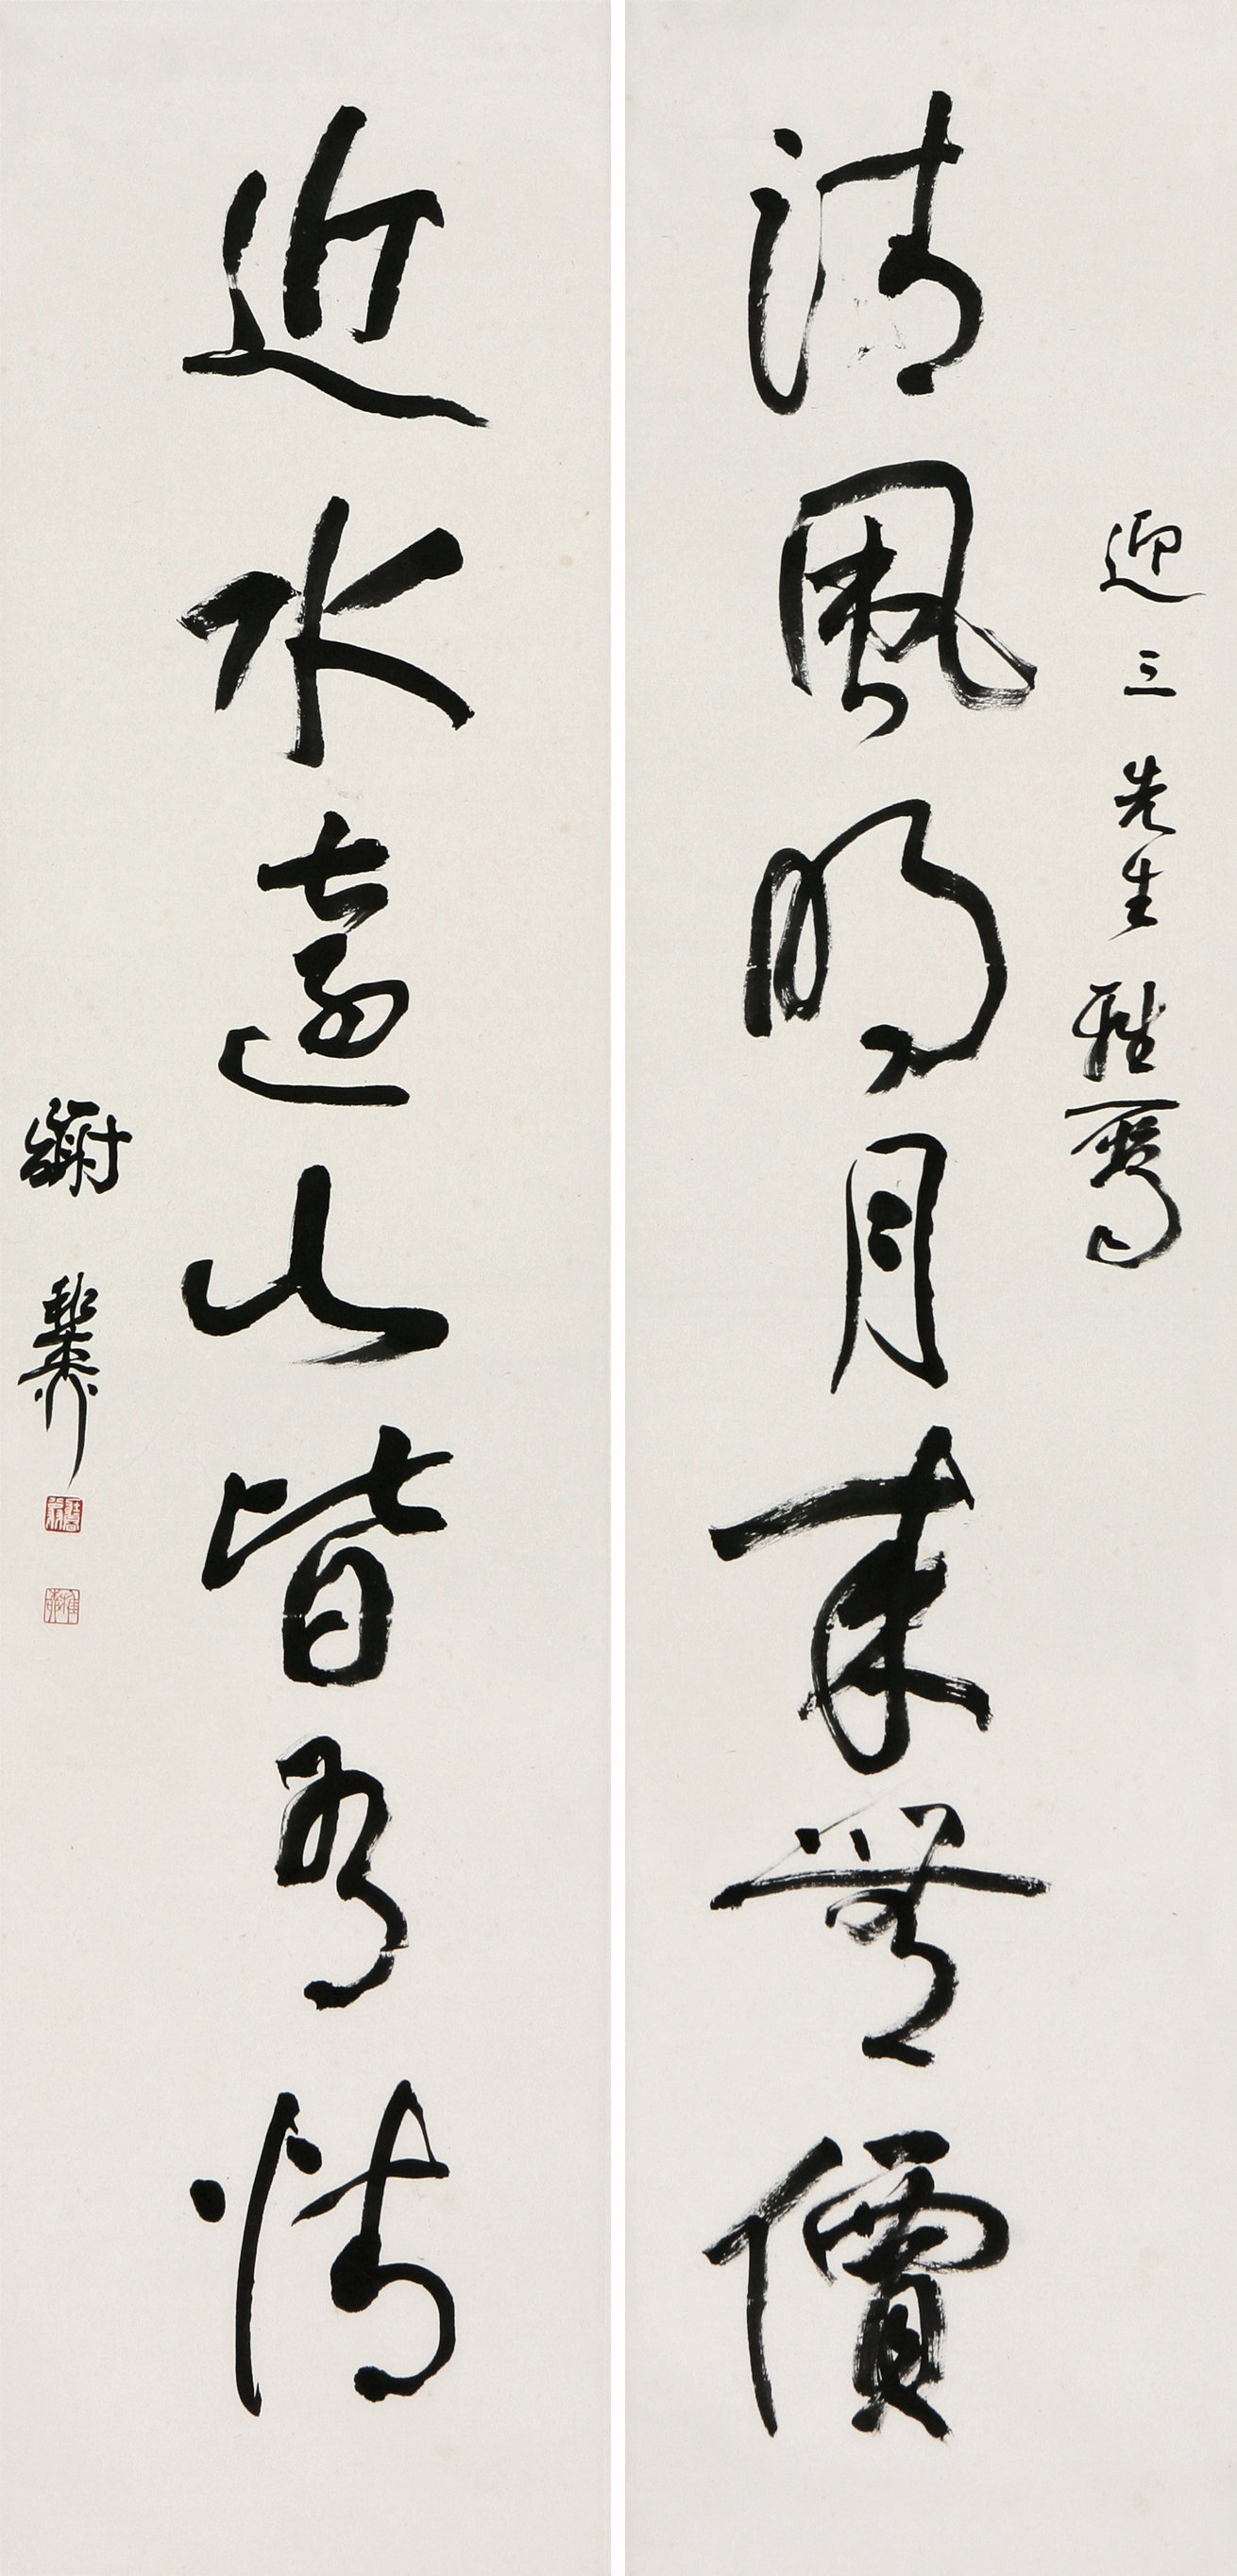 迎三先生雅屬
清風明月本無價
近水遠山皆有情